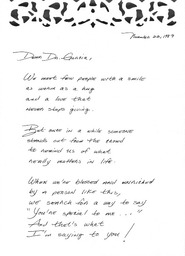 November 20, 1989
Dear Dr.
We meet few people with a smile
as warm as a hug
and a love that
never stops giving.
But once in a while someone
stands out from the crowd
to remind us of what
really matters in life.
When we're blessed and enriched
by a person like this,
we search for a way to say
"You're special to me..."
And that's what
I'm saying to you!